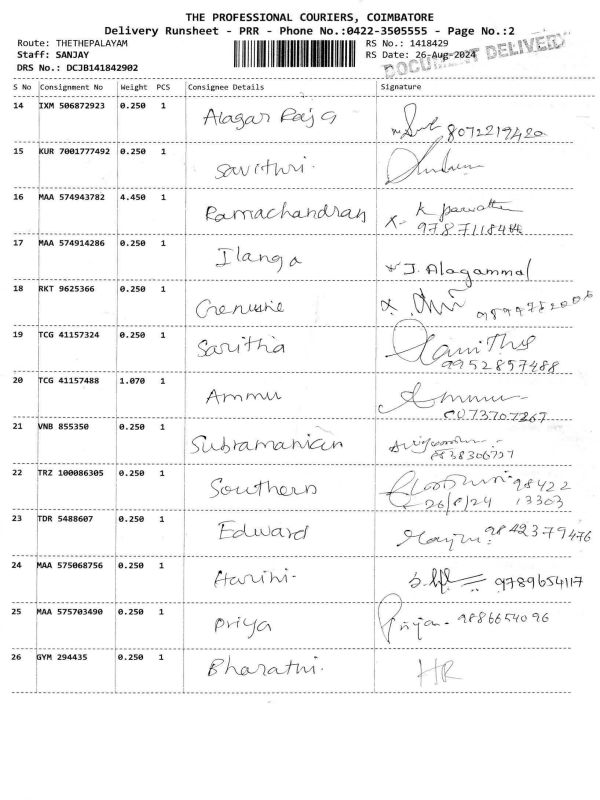 THE PROFESSIONAL COURIERS, COIMBATORE
Delivery Runsheet - PRR - Phone No.:0422-3505555 - Page No.:2
Route: THETHEPALAYAM RS No.: 1418429
Staff: SANJAY RS Date: 26-Aug-2024
DOCUMENT DELIVERY
DRS No.: DCJB141842902
S No Consignment No Weight PCS Consignee Details Signature
14 IXM 506872923 0.250 1 Alagar Raja 8072219420
15 KUR 7001777492 0.250 1 Savithri.
16 MAA 574943782 4.450 1 Ramachandran K
17 MAA 574914286 0.250 1 Ilanga J. Alagammal
18 RKT 9625366 0.250 1
19 TCG 41157324 0.250 1 Saritha 9952857488
20 TCG 41157488 1.070 1 Ammu Ammu
21 VNB 855350 0.250 1 Subramanian
22 TRZ 100086305 0.250 1 Southern 98422
26/8/24 13303
23 TDR 5488607 0.250 1 Edward 9842379476
24 MAA 575068756 0.250 1 Harini. 9789654117
25 MAA 575703490 0.250 1 Priya Priya. 9886654096
26 GYM 294435 0.250 1 Bharathi. HR